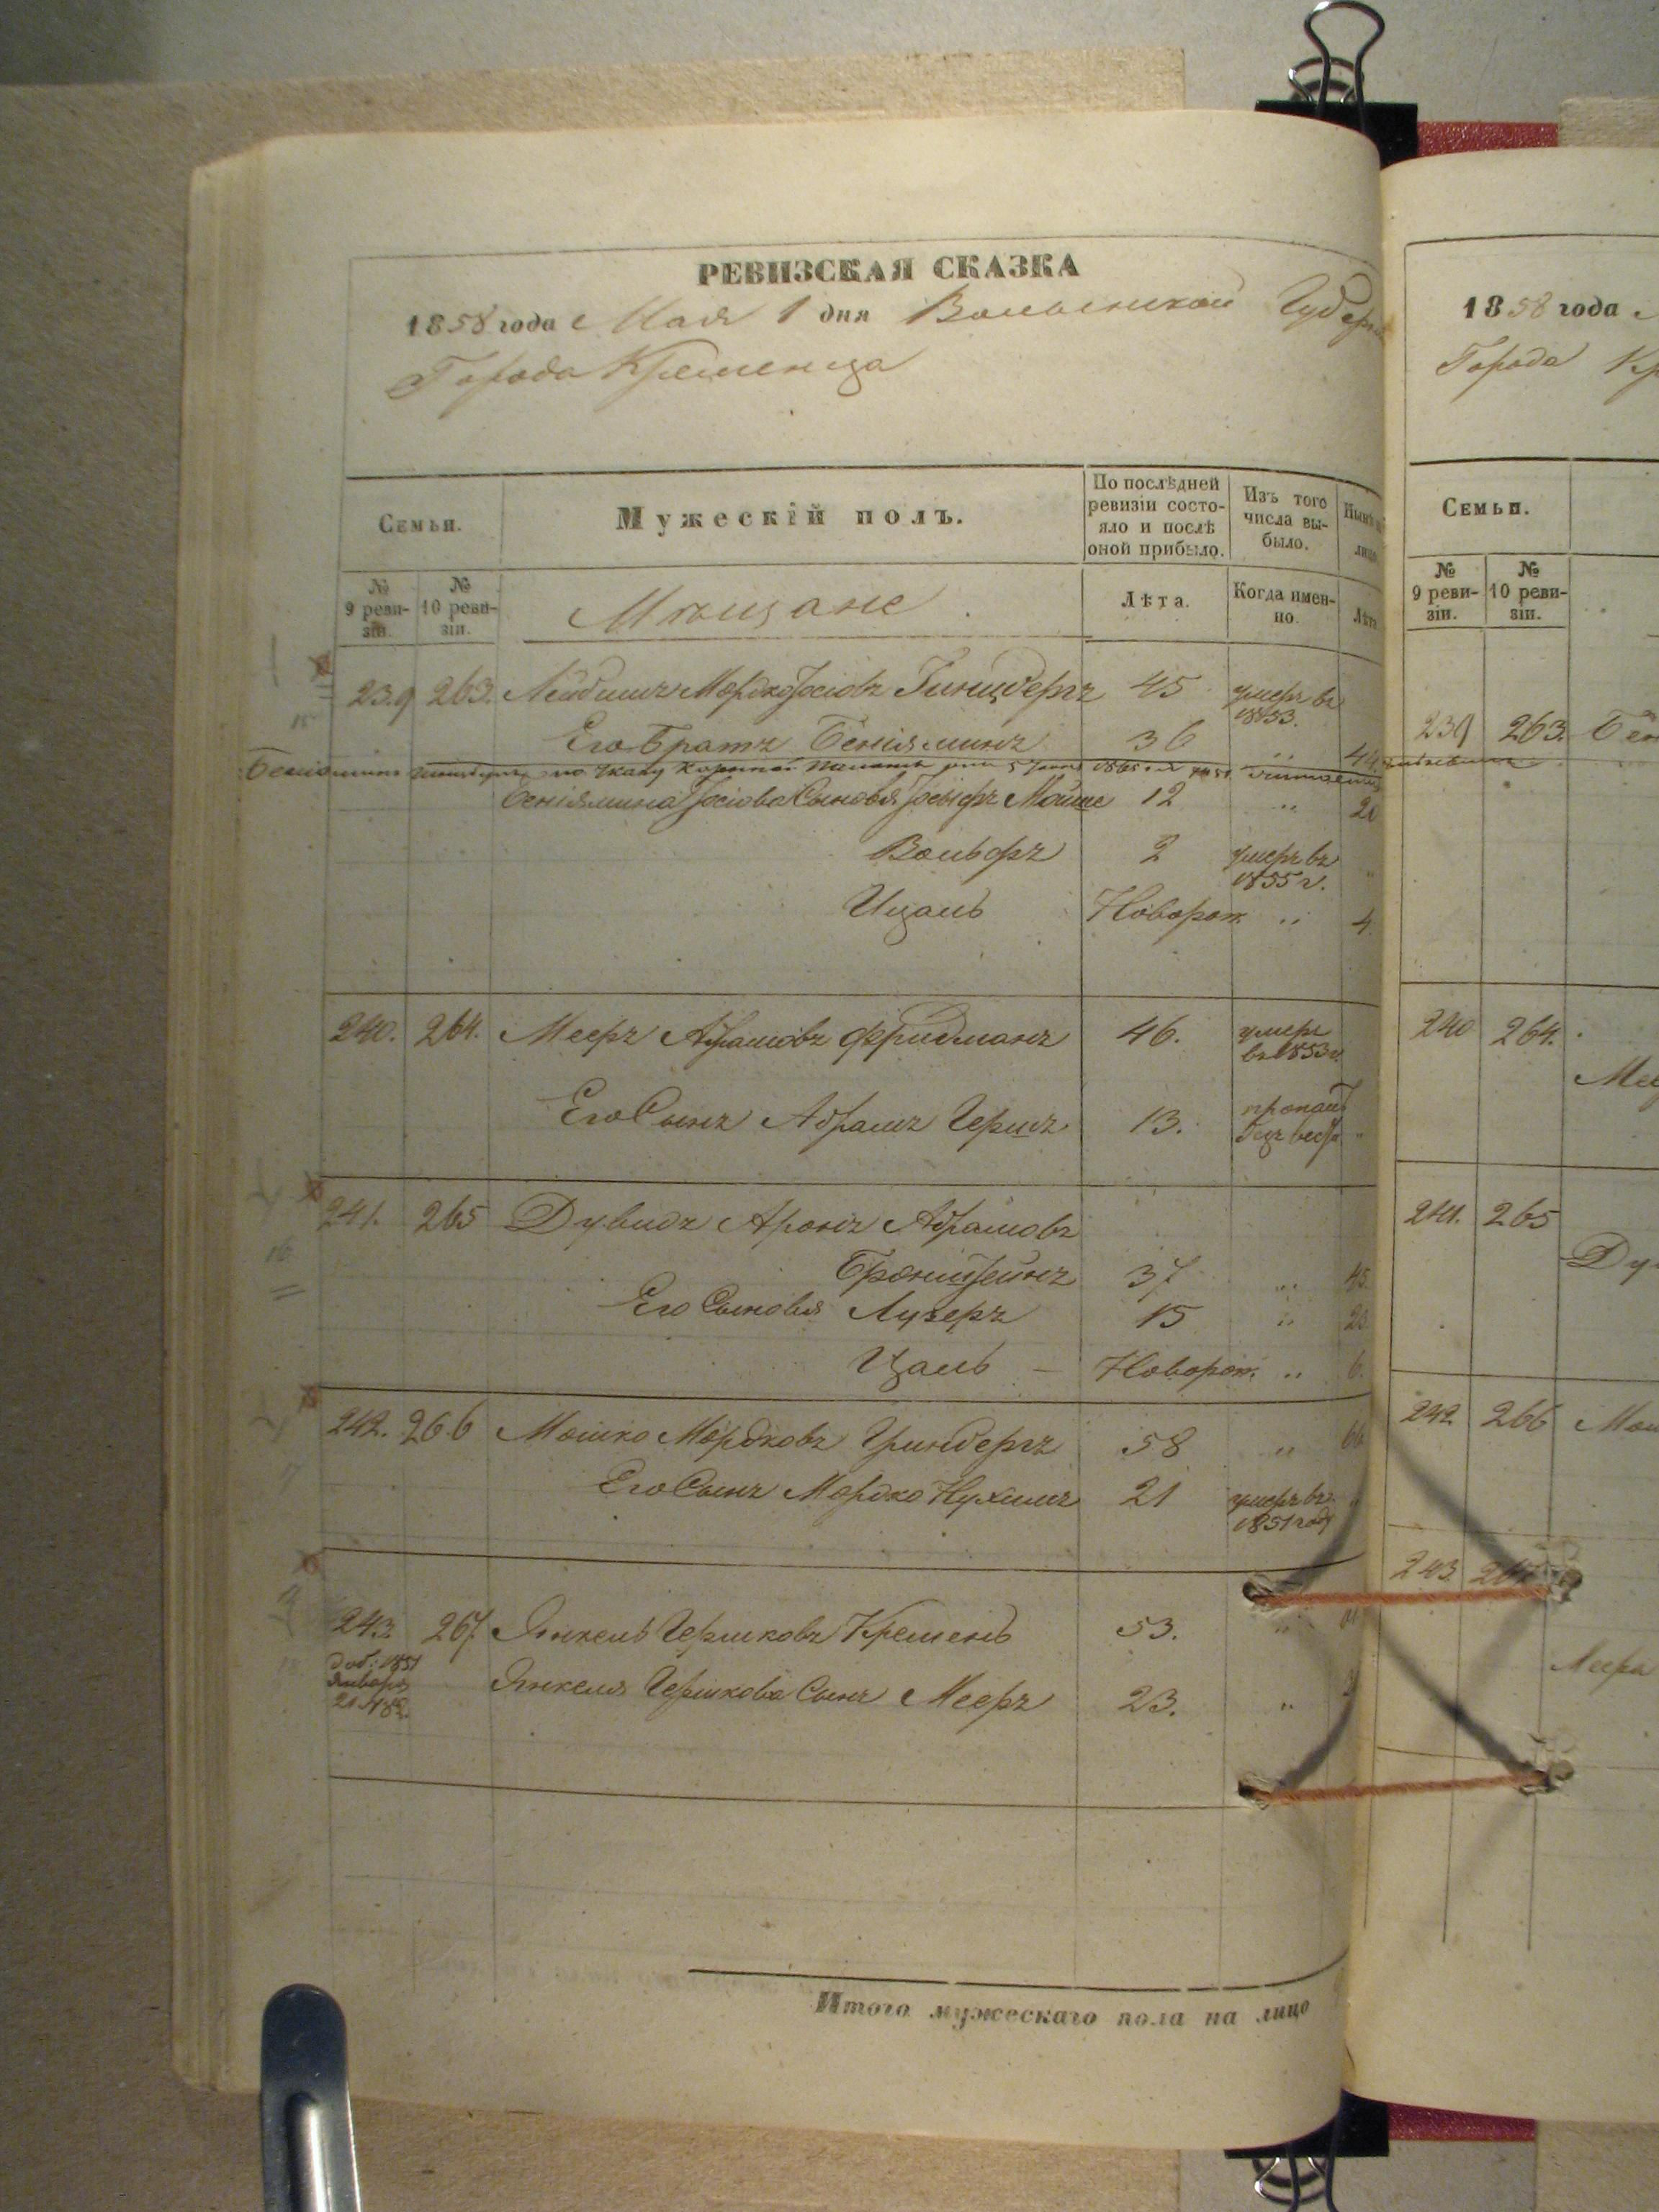 РЕВИЗСКАЯ СКАЗКА
1858 года Мая 1 дня Волынской Губерн
Города Кременца
Семьи.
Мужескій полъ.
По послѣдней ревизіи состо-
яло и послѣ
оной прибыло.
Изъ того
числа вы-
было.
№
9 реви-
зіи.
№
10 реви-
зіи.
Мѣщане
Лѣта.
Когда имен-
но.
Лѣта
239 263. Лейбишъ Мордко Іосіовъ Гинцбергъ 45 умеръ въ
1853.
Его Братъ Беніяминъ 36 „ 44
Беніяминъ Гинцбургъ по указу Казенной Палаты 1865
Беніямина Іосіова Сыновья Іосифъ Мойше 12 „ 20
Вольфъ 2 умеръ въ
1855 г. „
Ицаль Новорож. „ 4.
240. 264. Мееръ Абрамовъ Фридманъ 46. умеръ
въ 1853 г.
Его Сынъ Абрамъ Гершъ 13. пропалъ
безъ вести „
241. 265 Дувидъ Аронъ Абрамовъ
Бронштейнъ 37 „ 45.
Его Сыновья Лузеръ 15 „ 23.
Цаль — Новорож. „ 6.
242. 266 Мошко Мордковъ Гринбергъ 58 „ 66
Его Сынъ Мордко Нухимъ 21 умеръ въ
1851 году
243 267. Янкель Гершковъ Кремень 53. „
доб: 1851
Января
Янкеля Гершкова Сынъ Мееръ 23. „
Итого мужескаго пола на лицо
1858 года
Города Кр
Семьи.
№
9 реви-
зіи.
№
10 реви-
зіи.
239 263. Бен
240 264.
Мее
241. 265
Ду
242 266 Мош
243
Меера